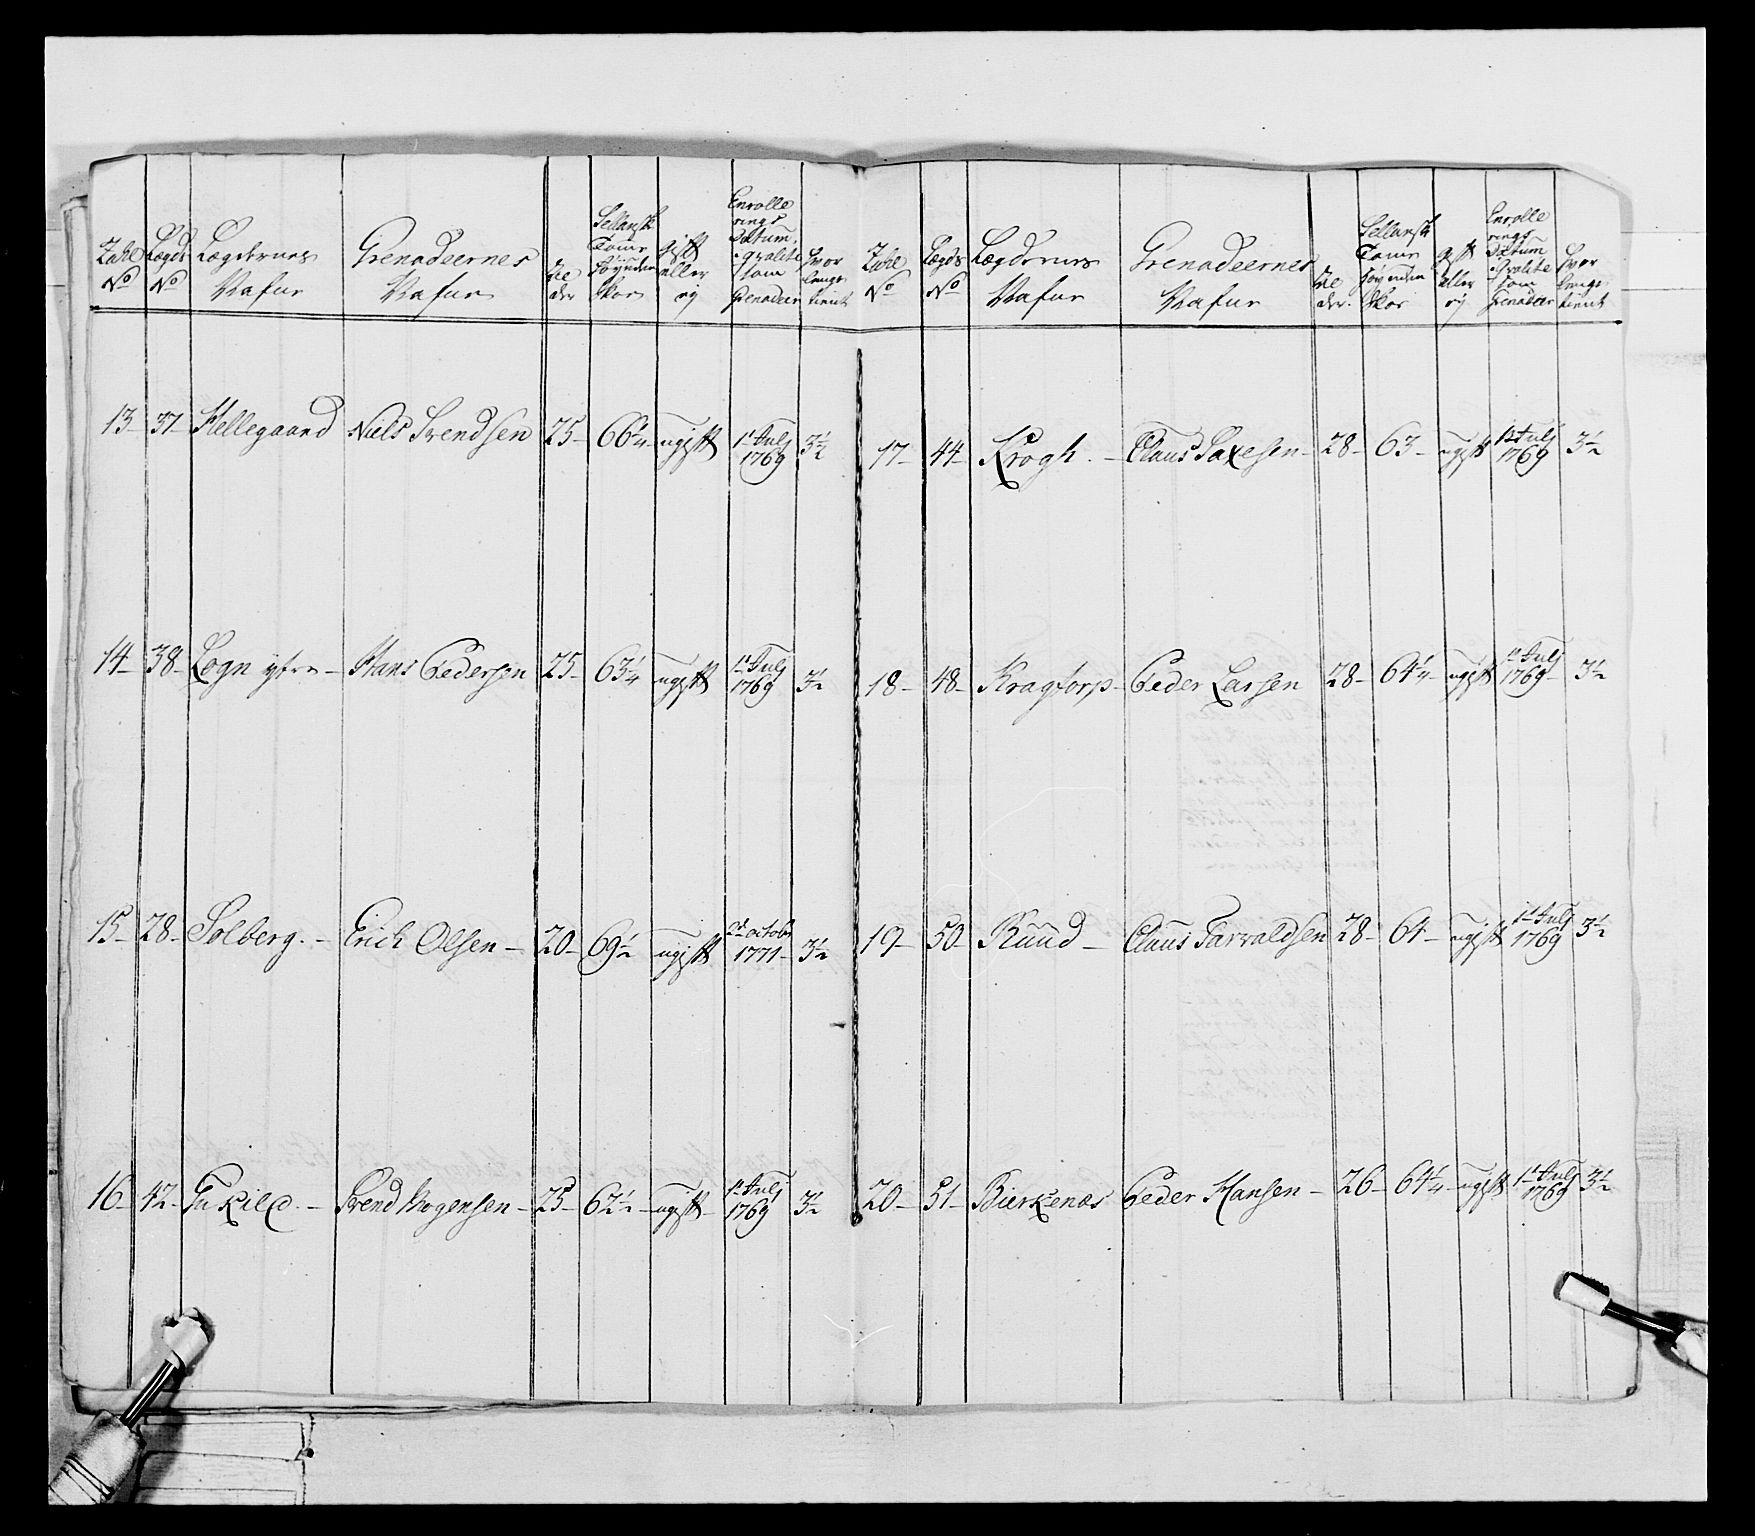 Zahl No
Lægds No
Lægdernes Nafne
Grenadeernes Nafne
Ælder
Sellandsk Tomer høy uden Skoe
gift eller ej
Enrollerings Datum i qvalite som Grenadeer
hvor lenge tient
13 - 37 - Hellegaard Niels Svendsen 25 - 66 1/4 - ugift 1t Julj 1769 3 1/2
14 - 38 - Logn ytre - Hans Pedersen 25 - 63 1/4 ugift 1t Julj 1769 3 1/2
15 - 28 - Solberg. - Erich Olsen - 20 - 69 1/2 ugift 2t octobr 1771 - 3 1/2
16 - 42 - Takild. - Svend Mogensen - 25 - 62 1/2 - ugift - 1t Julj 1769 3 1/2
Zahl No
Lægds No
Lægdernes Nafne
Grenadeernes Nafne
Ælder.
Sellandsk Tomer høy uden Skoe
gift eller ej
Enrollerings Datum i qvalite som Grenadeer
hvor lenge tient
17 - 44 - Krogh. - Claus Saxesen - 28 - 63 - ugift 1t Julj 1769 3 1/2
18 - 48 - Kragtorp - Peder Larsen 28 - 64 1/4 - ugift 1t Julj 1769 - 3 1/2
19 - 50 - Ruud - Claus Tarvaldsen 28 - 64 - ugift 1t Julj 1769 3 1/2
20 - 51 - Bierkenæs Peder Hansen - 26 - 64 1/4 - ugift 1t Julj 1769 3 1/2